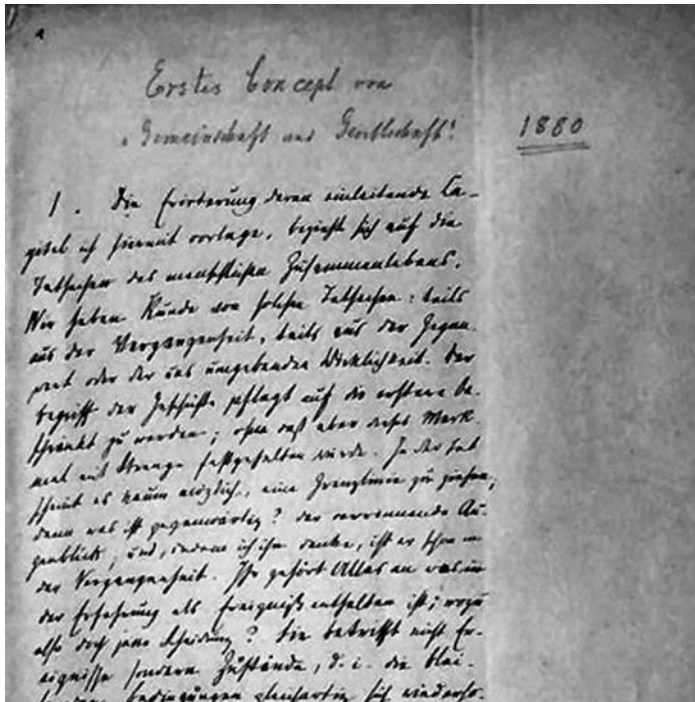 Erstes Concept von
„Gemeinschaft und Gesellschaft“.
1880
1. Die Erörterung deren einleitende Ca-
pitel ich hiermit vorlege, bezieht sich auf die
Tatsachen des menschlichen Zusammenlebens.
Wir haben Kunde von solchen Tatsachen: teils
aus der Vergangenheit, teils aus der Gegen-
wart oder der uns umgebenden Wirklichkeit. Der
Begriff der Geschichte pflegt auf die erstere be-
schränkt zu werden; ohne daß aber dieses Merk-
mal mit Strenge festgehalten würde. In der Tat
scheint es kaum möglich, eine Grenzlinie zu ziehen;
denn was ist gegenwärtig? der verrinnende Au-
genblick; und, indem ich ihn denke, ist er schon in
der Vergangenheit. Ihr gehört Alles an was in
der Erfahrung als Ereigniß enthalten ist; wozu
also doch jene Scheidung? Sie betrifft nicht Er-
eignisse sondern Zustände, d. i. die blei-
bedingungen gleichartig sich wiederho-